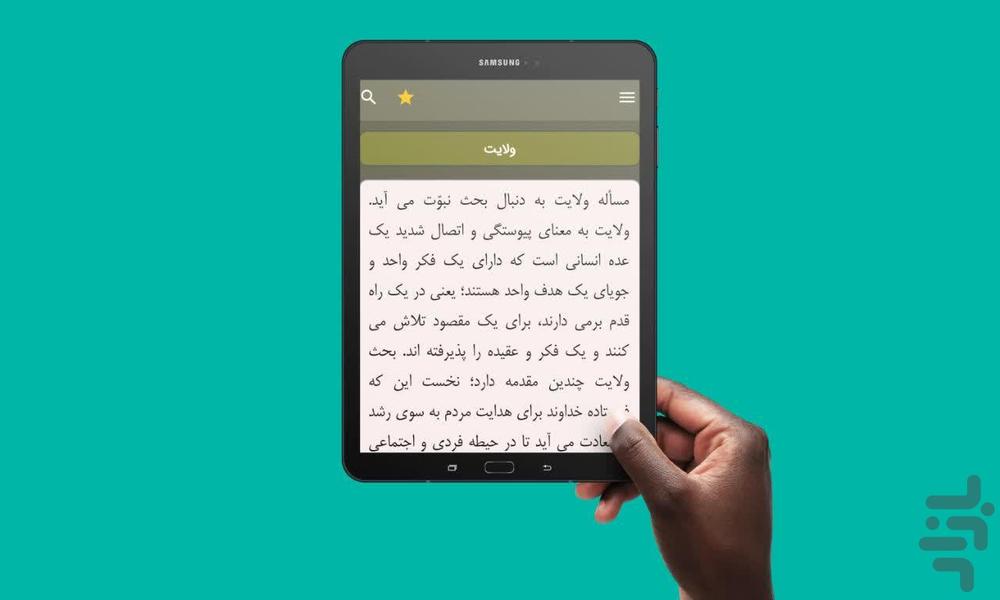 SAMSUNG
ولایت
مسأله ولایت به دنبال بحث نبوّت می آید.
ولایت به معنای پیوستگی و اتصال شدید یک
عده انسانی است که دارای یک فکر واحد و
جویای یک هدف واحد هستند؛ یعنی در یک راه
قدم برمی دارند، برای یک مقصود تلاش می
کنند و یک فکر و عقیده را پذیرفته اند. بحث
ولایت چندین مقدمه دارد؛ نخست این که
خداوند برای هدایت مردم به سوی رشد
می آید تا در حیطه فردی و اجتماعی
بازار